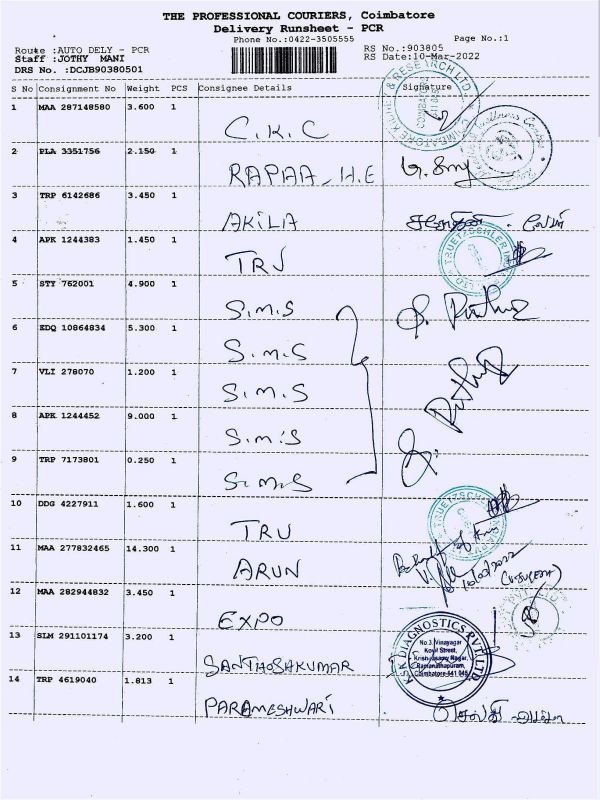 THE PROFESSIONAL COURIERS, Coimbatore
Delivery Runsheet - PCR
Phone No.:0422-3505555
Page No.:1
Route :AUTO DELY - PCR
RS No.:903805
Staff :JOTHY MANI
RS Date:10-Mar-2022
DRS No. :DCJB90380501
S No Consignment No Weight PCS Consignee Details Signature
1 MAA 287148580 3.600 1 C.K.C
2 PLA 3351756 2.150 1 RAPAA-H.E
3 TRP 6142686 3.450 1 AKILA
4 APK 1244383 1.450 1 TRV
5 STY 762001 4.900 1 S.M.S
6 EDQ 10864834 5.300 1 S.M.S
7 VLI 278070 1.200 1 S.M.S
8 APK 1244452 9.000 1 S.M.S
9 TRP 7173801 0.250 1 S.M.S
10 DDG 4227911 1.600 1 TRU
11 MAA 277832465 14.300 1 ARUN
12 MAA 282944832 3.450 1 EXPO
13 SLM 291101174 3.200 1 SANTHOSHKUMAR
DIAGNOSTICS PVT LTD
No.3, Vinayagar
Kovil Street,
Krishnasamy Nagar,
Ramanathapuram,
Coimbatore-641 045
14 TRP 4619040 1.813 1 PARAMESHWARI